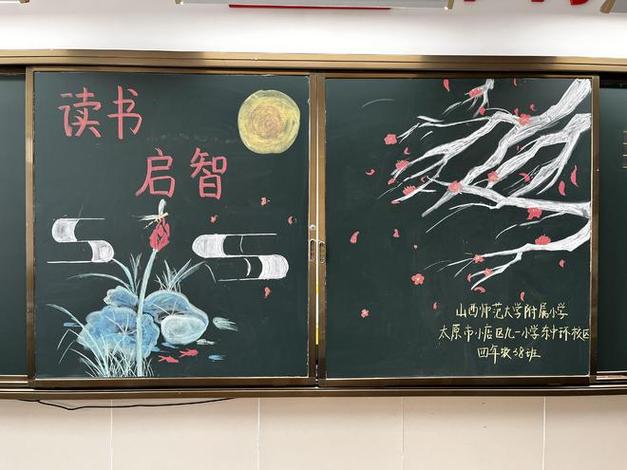 读书
启智
山西师范大学附属小学
太原市小店区九一小学东中环校区
四年级38班